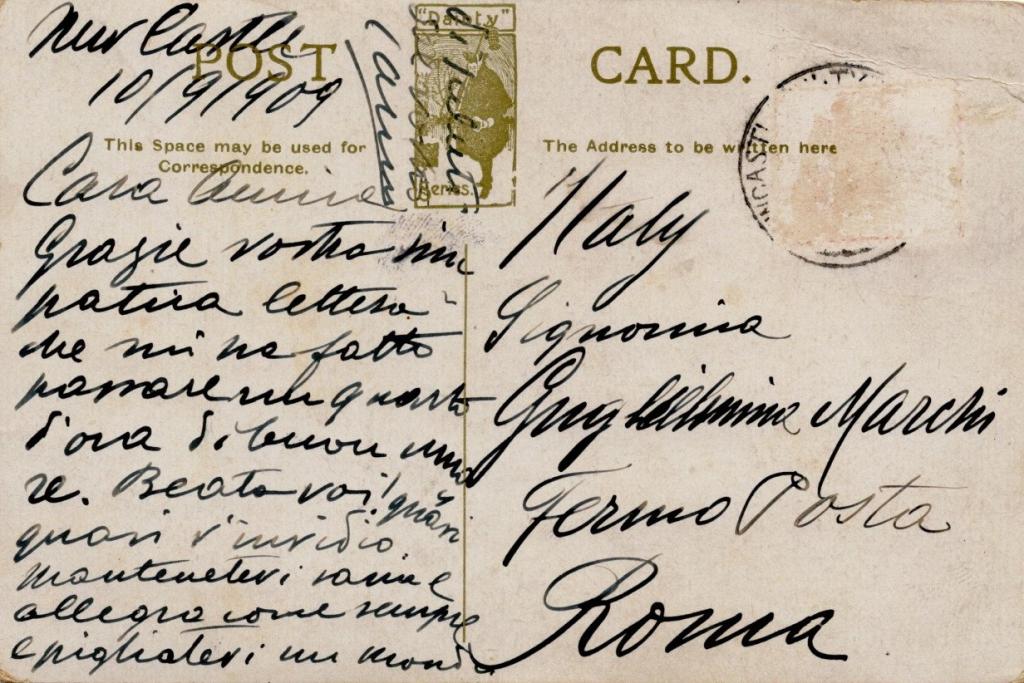 New Castle
10/9/1909
POST
CARD.
"Dainty"
Series.
This Space may be used for
Correspondence.
The Address to be written here
Cara amica
Grazie vostra sim
patica lettera
che mi ha fatto
passare un quarto
d'ora di buon umo
re. Beata voi! quasi
quasi v'invidio.
Mantenetevi sana e
allegra come sempre
e pigliatevi un mondo
di saluti
dal vostro
Italy
Signorina
Guglielmina Marchi
Fermo Posta
Roma